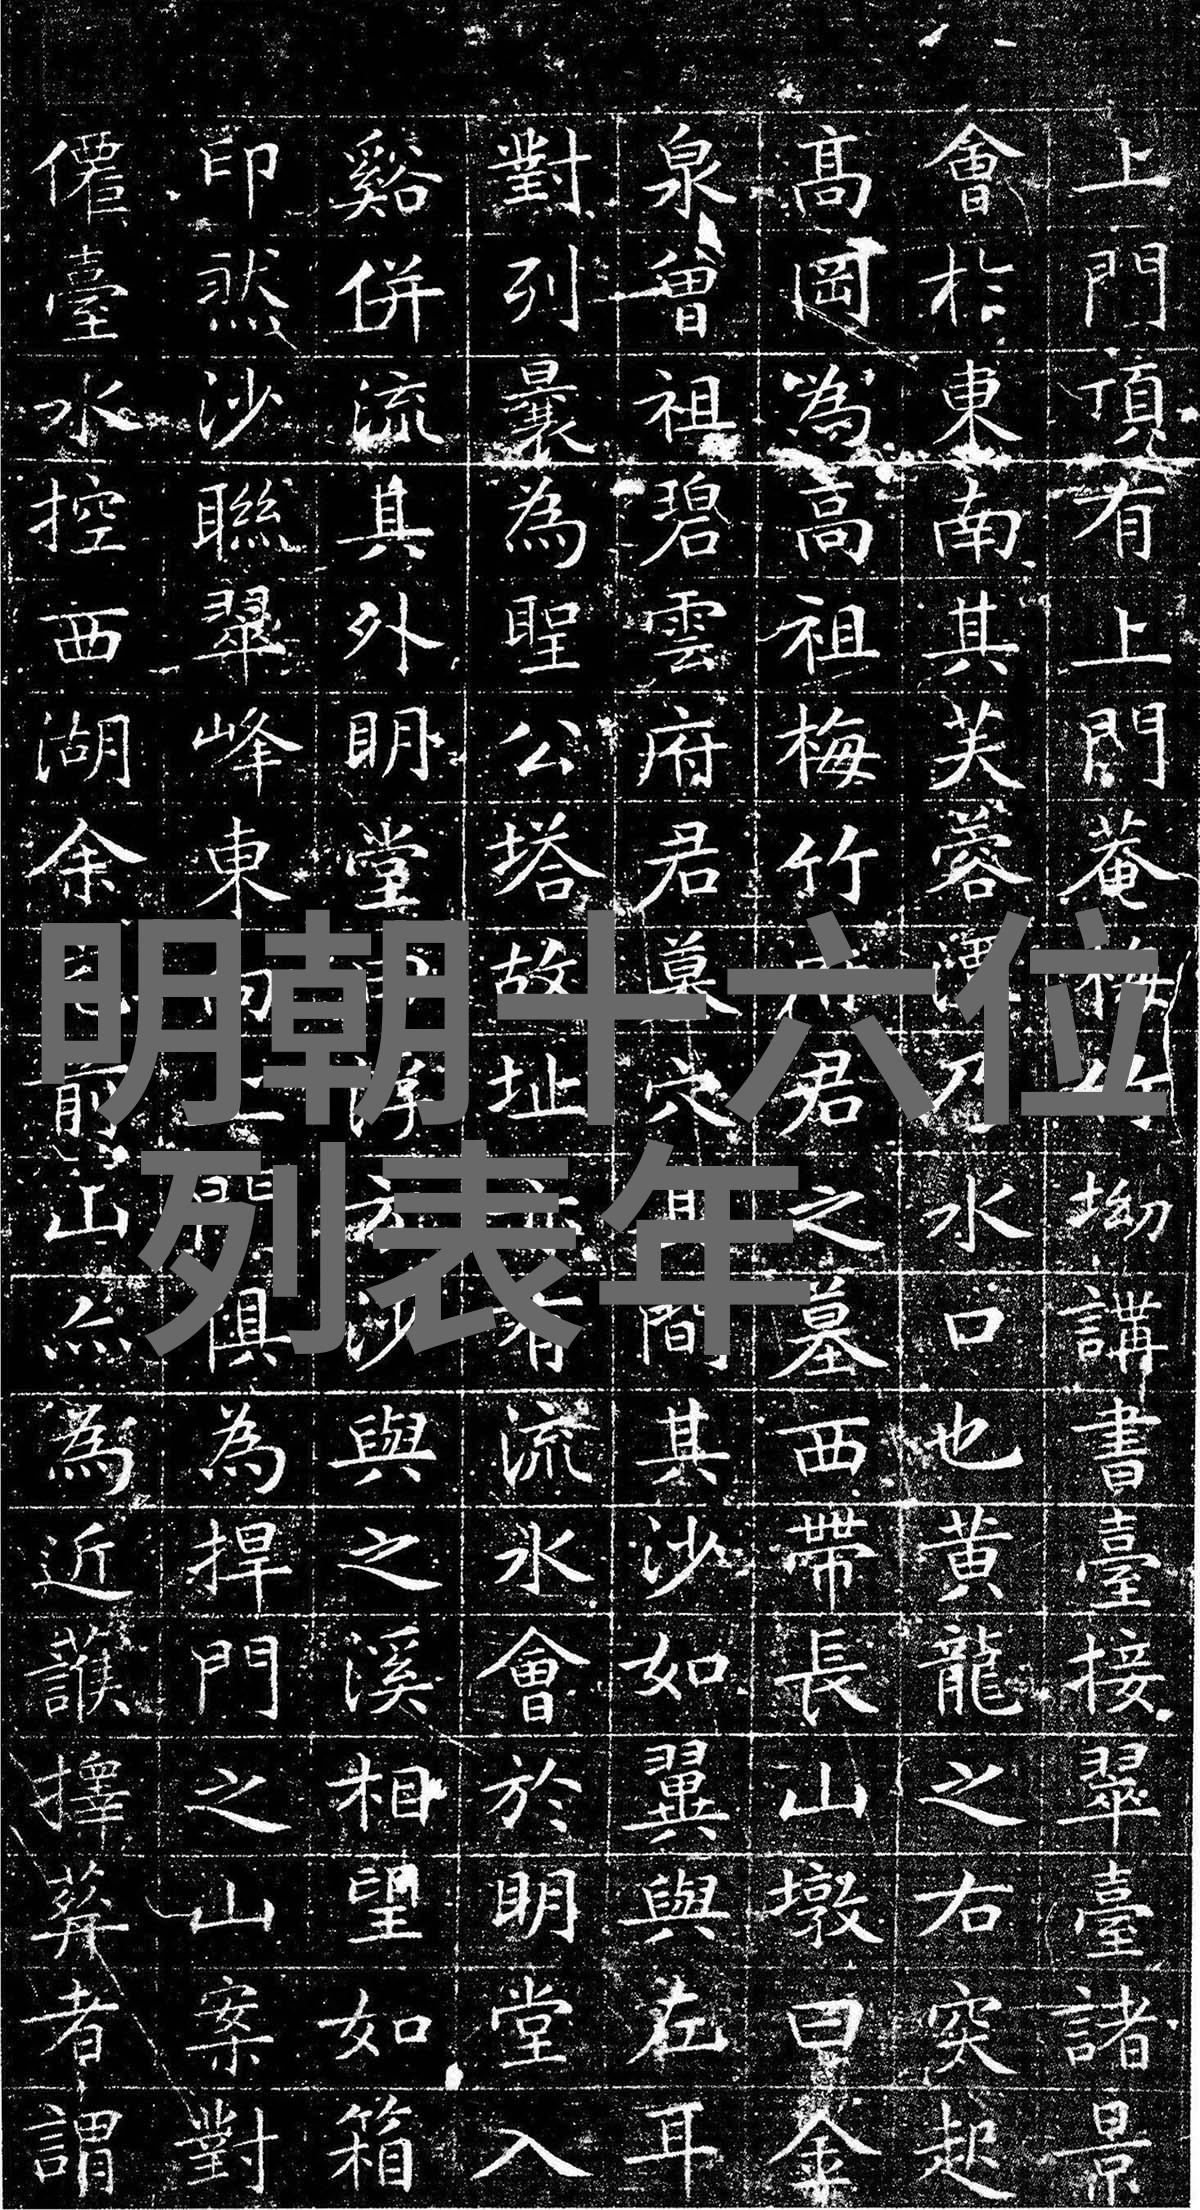 上門頂有上門菴梅竹坳講書臺接翠臺諸景
會於東南其芙蓉潭乃水口也黄龍之右突起
高岡為高祖梅竹府君之墓西帶長山墩曰金
泉曾祖碧雲府君墓穴其間其沙如翼與左耳
對列曩為聖公塔故址亦有流水會於明堂入
谿併流其外明堂浮沙與之溪相望如箱
印然沙聯翠峰東向上關俱為捍門之山案對
僊臺水控西湖余前山亦為近護擇葬者謂
明朝十六位
列表年